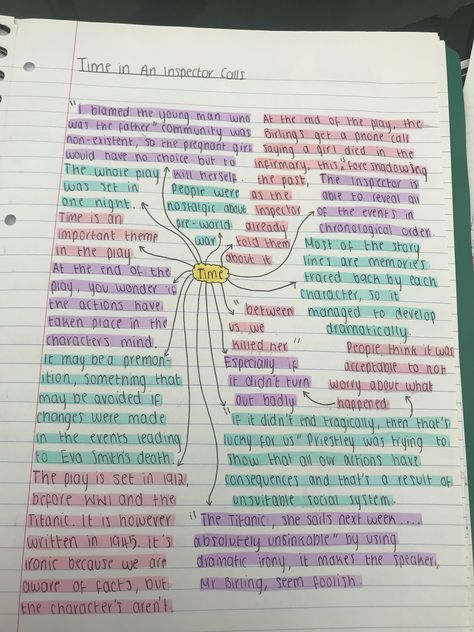 Time in An Inspector Calls
"I blamed the young man who
was the father" community was
non-existent, so the pregnant girl
would have no choice but to
kill herself.
At the end of the play, the
Birlings get a phone call
saying a girl died in the
infirmary, this "fore shadowing
the past,
as the
Inspector
already
told them
about it
The whole play
was set in
one night.
People were
nostalgic about
pre-world
war
The Inspector is
able to reveal all
of the events in
chronological order.
Time is an
important theme
in the play
Time
Most of the story
lines are memories
traced back by each
character, so it
managed to develop
dramatically.
At the end of the
play, you wonder if
the actions have
taken place in the
character's mind.
"between
us we
killed her"
People think it was
acceptable to not
worry about what
happened
Especially if
it didn't turn
out badly
It may be a premon-
ition, something that
may be avoided if
changes were made
in the events leading
to Eva Smith's death.
"If it didn't end tragically, then that's
lucky for us" Priestley was trying to
show that all our actions have
consequences and that's a result of
unsuitable social system.
The play is set in 1912,
before WW1 and the
Titanic. It is however
written in 1945. It's
ironic because we are
aware of facts, but
the character's aren't.
"The Titanic, she sails next week....
absolutely unsinkable" by using
dramatic irony, it makes the speaker,
Mr Birling, seem foolish.